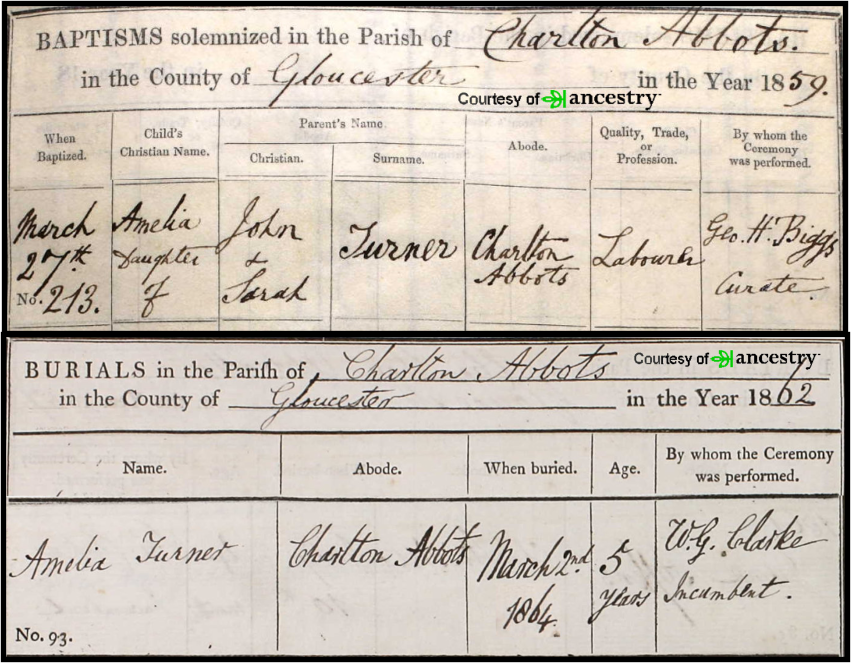 BAPTISMS solemnized in the Parish of Charlton Abbots.
in the County of Gloucester in the Year 1859.
Courtesy of ancestry
When Baptized.
Child's Christian Name.
Parent's Name.
Christian.
Surname.
Abode.
Quality, Trade, or Profession.
By whom the Ceremony was performed.
March 27th.
No. 213.
Amelia Daughter of
John & Sarah
Turner
Charlton Abbots
Labourer
Geo. H. Biggs Curate.
BURIALS in the Parish of Charlton Abbots
Courtesy of ancestry
in the County of Gloucester in the Year 1862
Name.
Abode.
When buried.
Age.
By whom the Ceremony was performed.
Amelia Turner
No. 93.
Charlton Abbots
March 2nd 1864.
5 years
W.G. Clarke Incumbent.